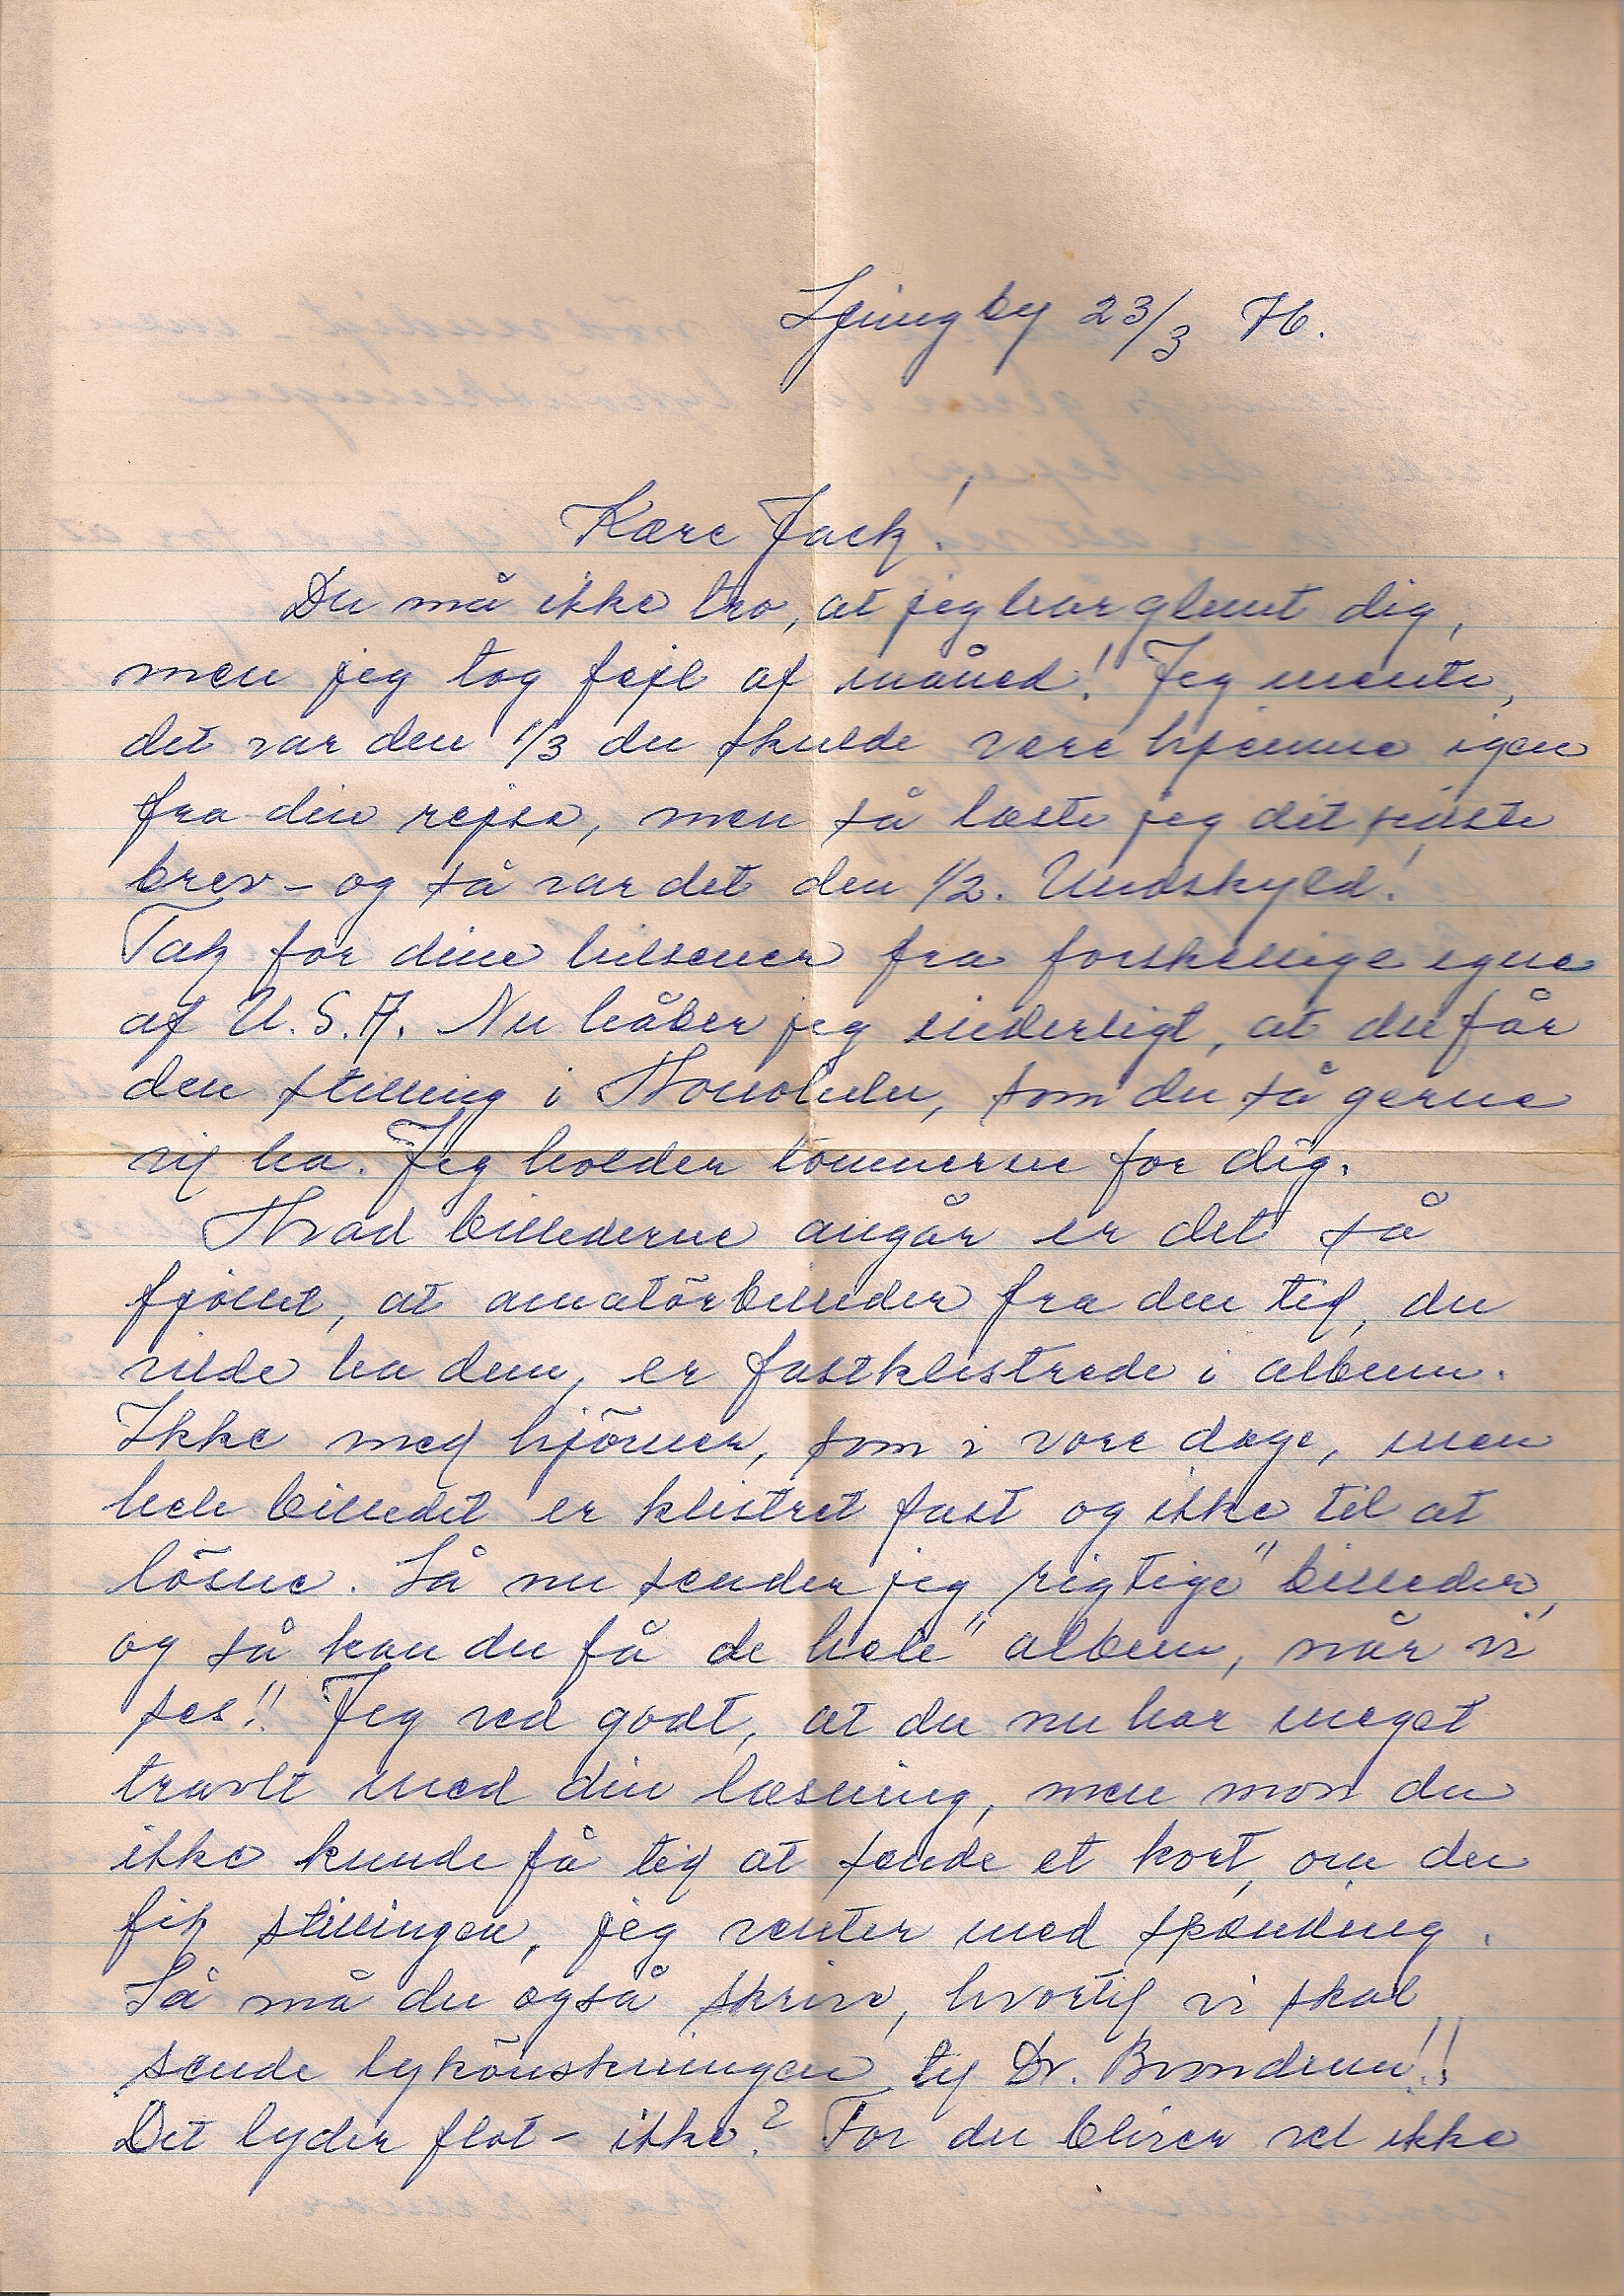 Ljungby 23/3 76.
Kære Jack!
Du må ikke tro, at jeg har glemt dig,
men jeg tog fejl af måned! Jeg mente,
det var den 1/3 du skulde være hjemme igen
fra din rejse, men så læste jeg dit sidste
brev – og så var det den 1/2. Undskyld!
Tak for dine hilsener fra forskellige egne
af U.S.A. Nu håber jeg inderligt, at du får
den stilling i Honolulu, som du så gerne
vil ha. Jeg holder tommerne for dig.
Hvad billederne angår er det så
fjollet, at amatörbilleder fra den tid, du
vilde ha dem, er fastklistrede i album.
Ikke med hjörner, som i vore dage, men
hele billedet er klistret fast og ikke til at
lösne. Så nu sender jeg "rigtige" billeder,
og så kan du få de "hele" album, når vi
ses!! Jeg ved godt, at du nu har meget
travlt med din læsning, men mon du
ikke kunde få tid at sende et kort, om du
fik stillingen, jeg venter med spænding.
Så må du også skrive, hvortil vi skal
sende lykönskningen til Dr. Brondum!!
Det lyder flot – ikke? For du bliver vel ikke